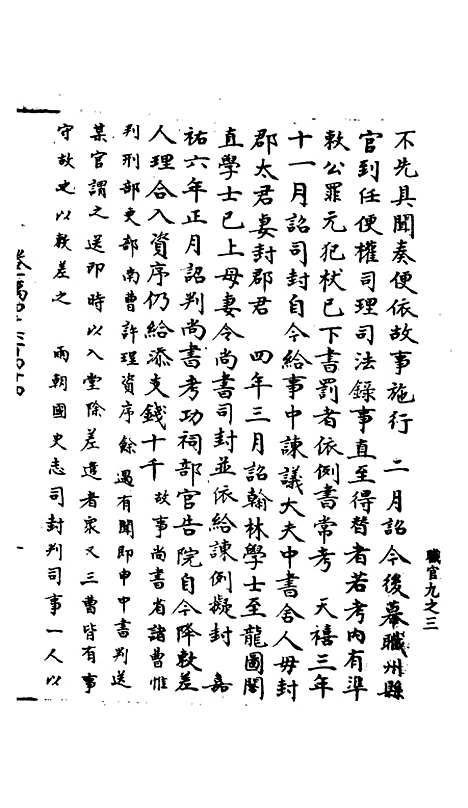 職官九之三
不先具聞奏便依故事施行　二月詔今後幕職州縣
官到任便權司理司法錄事直至得替者若考內有準
敕公罪元犯杖已下書罰者依例書常考　天禧三年
十一月詔司封自今給事中諫議大夫中書舍人母封
郡太君妻封郡君　四年三月詔翰林學士至龍圖閣
直學士已上母妻令尚書司封並依給諫例擬封　嘉
祐六年正月詔判尚書考功祠部官告院自今降敕差
人理合入資序仍給添支錢十千故事尚書省諸曹惟
判刑部吏部南曹許理資序餘遇有聞即申中書判送
某官謂之送印時以入堂除差遣者眾又三曹皆有事
守故也以敕差之　兩朝國史志司封判司事一人以